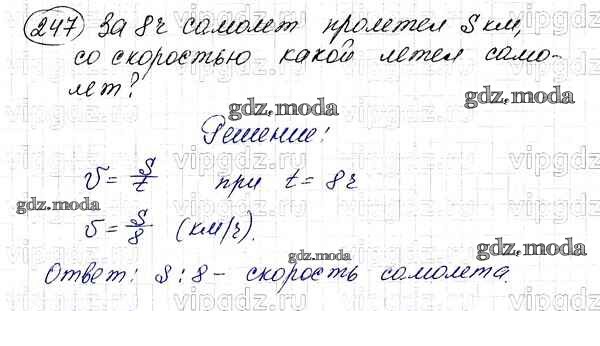 247 За 8ч самолет пролетел S км,
со скоростью какой летел само-
лет?
gdz.moda
gdz.moda
Решение:
v = S/t при t = 8ч
gdz.moda
v = S/8 (км/ч).
gdz.moda
gdz.moda
Ответ: S : 8 - скорость самолета.
vipgdz.ru